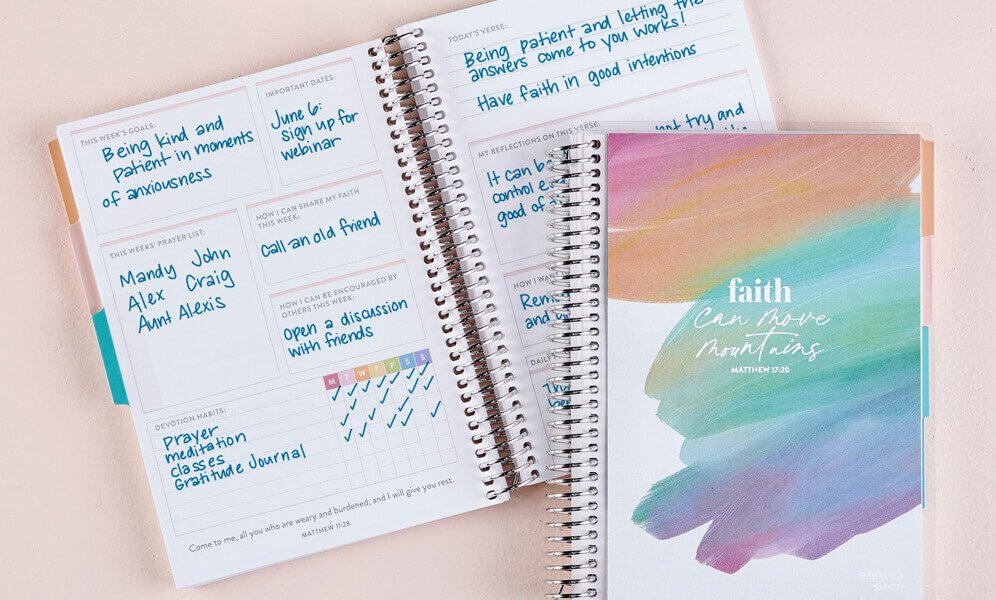 THIS WEEK'S GOALS:
Being kind and
patient in moments
of anxiousness
IMPORTANT DATES:
June 6:
sign up for
webinar
THIS WEEKS' PRAYER LIST:
Mandy John
Alex Craig
Aunt Alexis
HOW I CAN SHARE MY FAITH
THIS WEEK:
Call an old friend
HOW I CAN BE ENCOURAGED BY
OTHERS THIS WEEK:
Open a discussion
with friends
M T W T F S S
DEVOTION HABITS:
Prayer
meditation
classes
Gratitude Journal
Come to me, all you who are weary and burdened, and I will give you rest.
MATTHEW 11:28
TODAY'S VERSE:
Being patient and letting the
answers come to you works!
Have faith in good intentions
MY REFLECTIONS ON THIS VERSE:
not try and
It can
control
good of
HOW I
and
DAILY
faith
can move
mountains
MATTHEW 17:20
REBECCA
SMITH